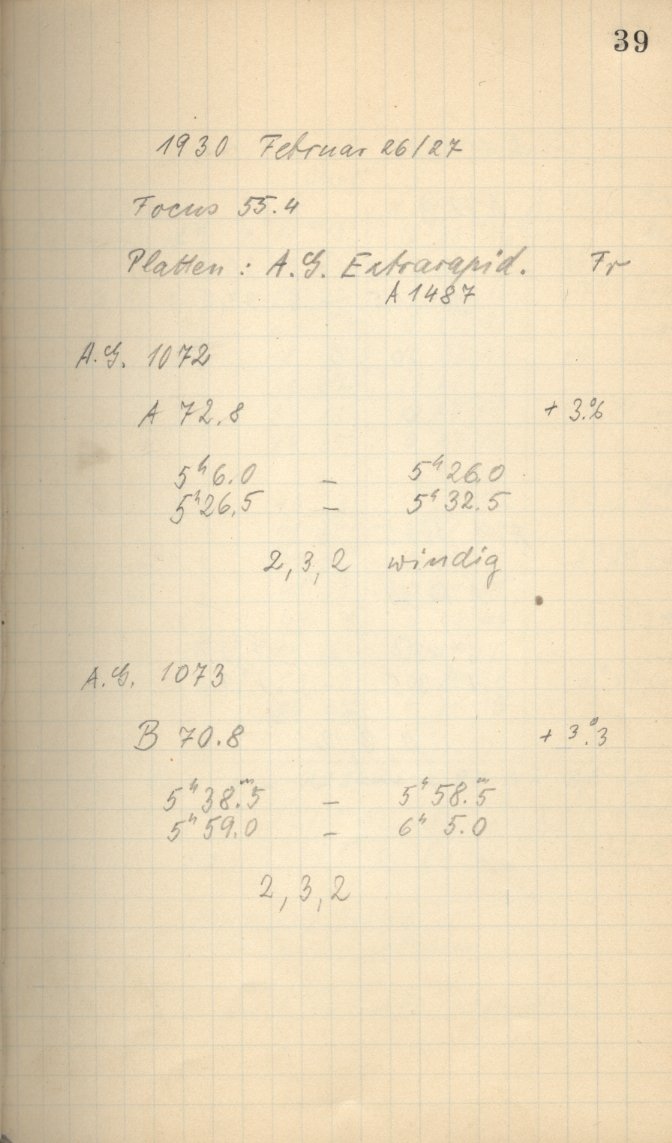 39
1930 Februar 26/27
Focus 55.4
Platten : A.G. Extrarapid. Fr
A 1487
A.G. 1072
A 72.8 + 3.°6
5ʰ6.0 – 5ʰ26.0
5ʰ26.5 – 5ʰ32.5
2, 3, 2 windig
A.G. 1073
B 70.8 + 3.°3
5ʰ38.ᵐ5 – 5ʰ58.ᵐ5
5ʰ59.0 – 6ʰ 5.0
2, 3, 2